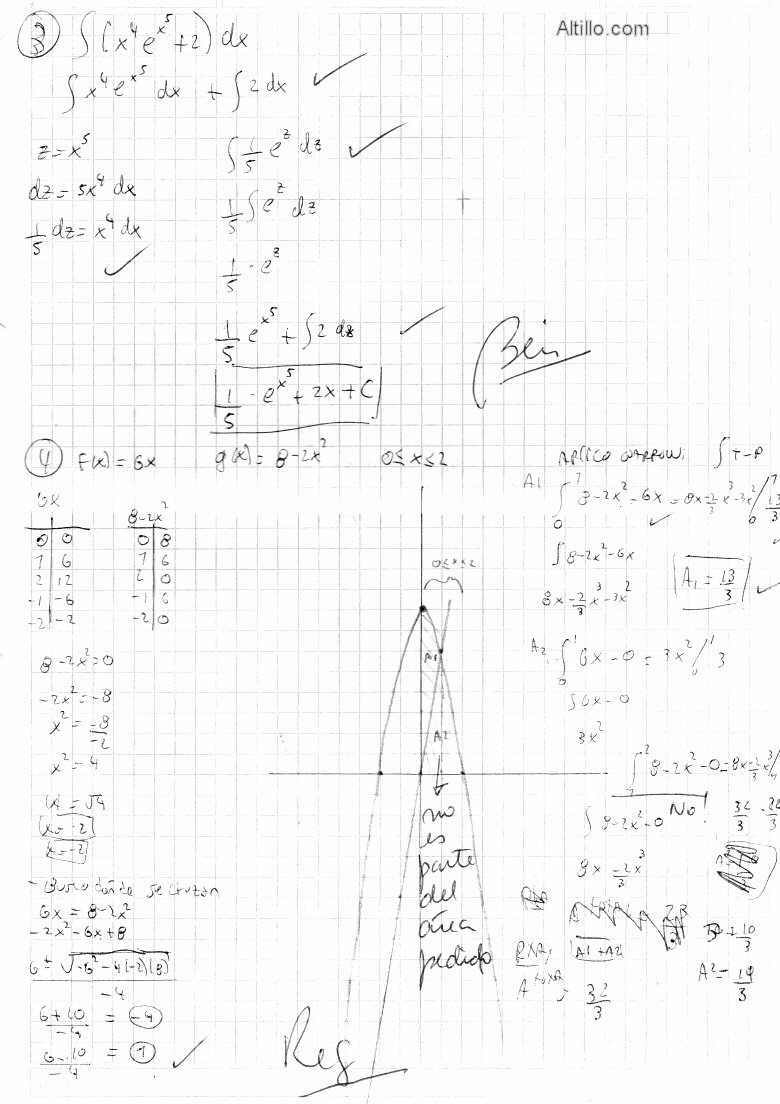 Altillo.com
③ ∫(x⁴e^x⁵+2) dx
∫x⁴e^x⁵ dx + ∫2dx
z=x⁵
dz=5x⁴dx
1/5 dz=x⁴dx
∫1/5 e^z dz
1/5 ∫e^z dz
1/5 · e^z
1/5 e^x⁵ + ∫2 dx
1/5 · e^x⁵ + 2x + C
Bien
④ F(x)=6x g(x)=8-2x² 0≤x≤2
6x
0 | 0
1 | 6
2 | 12
-1 | -6
-2 | -2
8-2x²
0 | 8
1 | 6
2 | 0
-1 | 6
-2 | 0
8-2x²=0
-2x²=-8
x²=-8/-2
x²=4
|x|=√4
x=-2
x=-2
- Busco donde se cruzan
6x = 8-2x²
-2x²-6x+8
6±√-6²-4(-2)(8)
-4
6+10/-4 = -4
6-10/-4 = 1
0≤x≤2
A1
A2
no
es
parte
del
área
pedido
Reg
Aplico Barrow: ∫T-P
A1 ∫₀¹ 8-2x²-6x = 8x-2/3x³-3x²/₀¹ 13/3
∫8-2x²-6x
8x-2/3x³-3x²
A1 = 13/3
A2 ∫₀¹ 6x-0 = 3x²/₀¹ 3
∫6x-0
3x²
∫₁² 8-2x²-0=8x-2/3x³/
No!
∫8-2x²-0
32/3
8x-2/3x³
A1+A2
32/3
10/3
A2= 19/3